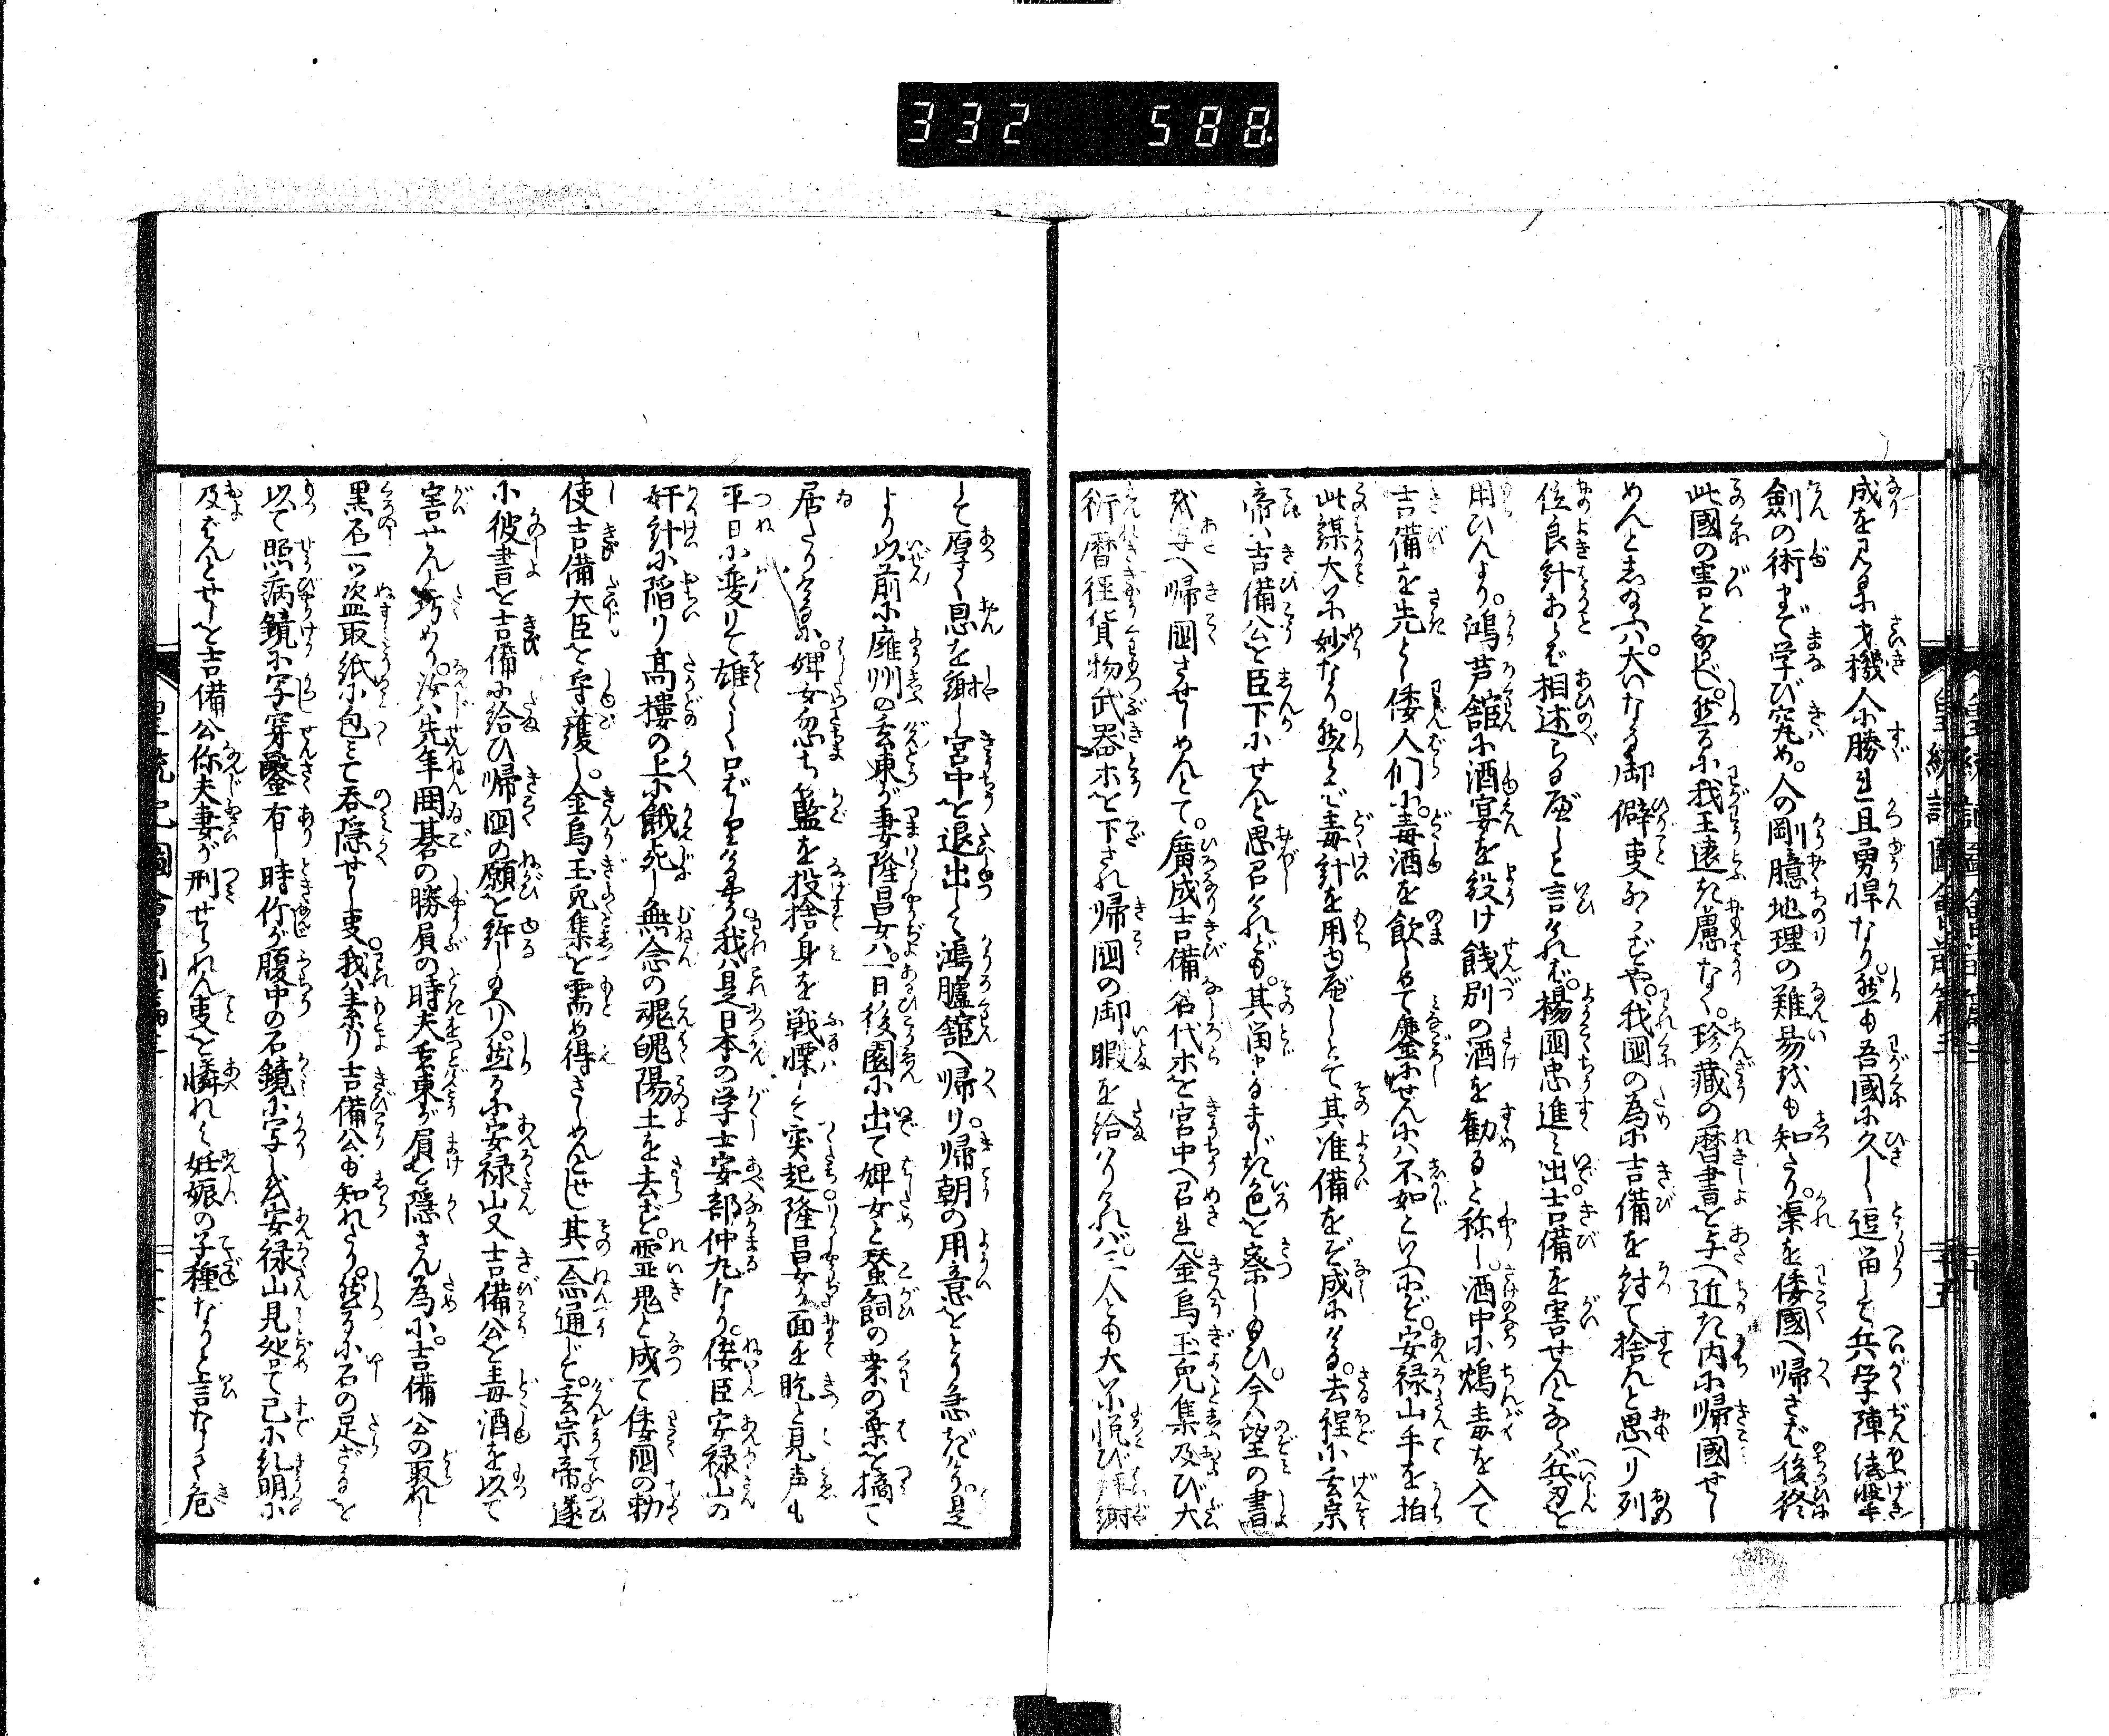 332 588
成を見るに才機人に勝れ且勇悍なり。然も吾國に久しく逗留して兵学陣法撃
剣の術まで学び究め。人の剛臆地理の難易就も知たり。渠を倭國へ帰さば後終
此國の害とならん。然るに我王遠き慮なく。珍蔵の暦書を与へ近き内に帰國せし
めんとし玉ふハ大いなる御僻事ならずや。我國の為に吉備を討て捨んと思へり列
位良計あらバ相述らるべしと言けれバ。楊国忠進ミ出吉備を害せんとならバ兵刃を
用ひんより。鴻芦舘に酒宴を設け餞別の酒を勧ると称し。酒中に鴆毒を入て
吉備を先とし倭人們に。毒酒を飲しめて鏖にせんにハ不如といふにぞ。安禄山手を拍
此謀大に妙なり。然らバ毒計を用ゆべしとて其准備をぞ成にける。去程に玄宗
帝ハ吉備公を臣下にせんと思召けれども。其留るまじき色を察し玉ひ。今ハ望の書
を与へ帰国させしめんとて。廣成吉備名代ホを宮中へ召れ。金烏玉兎集及び大
衍暦径貨物武器ホを下され帰国の御暇を給ハりけれバ。三人とも大に悦び拝謝
して厚く恩を謝し宮中を退出して鴻臚舘へ帰り。帰朝の用意をとり急ぎけり。是
より以前に廱州の玄東が妻隆昌女ハ。一日後園に出て婢女と蚕飼の桒の葉を摘て
居たりけるに。婢女忽ち籃を投捨身を戦慄して突起隆昌女が面を屹と見声も
平日に変りて雄々しく口ばしりけるやう我ハ是日本の学士安部仲丸なり。侫臣安禄山の
奸計に陥り高樓の上に餓死し無念の魂魄陽土を去ず。霊鬼と成て倭國の勅
使吉備大臣を守護し。金烏玉兎集を需め得さしめんとせし其一念通じて。玄宗帝遂
に彼書を吉備に給ひ帰国の願を許し玉へり。然るに安禄山又吉備公を毒酒を以て
害せんと巧めり。汝ハ先年囲碁の勝負の時夫玄東が負を隠さん為に。吉備公の取れし
黒石一ツ盗取紙に包ミて呑隠せし事。我ハ素より吉備公も知れたり。然るに石の足ざるを
以て照病鏡に写し穿鑿有し時你が腹中の石鏡に写しを安禄山見咎て已に糺明に
及ばんとせしを吉備公你夫妻が刑せられん事を憐れミ妊娠の子種なりと言なして危